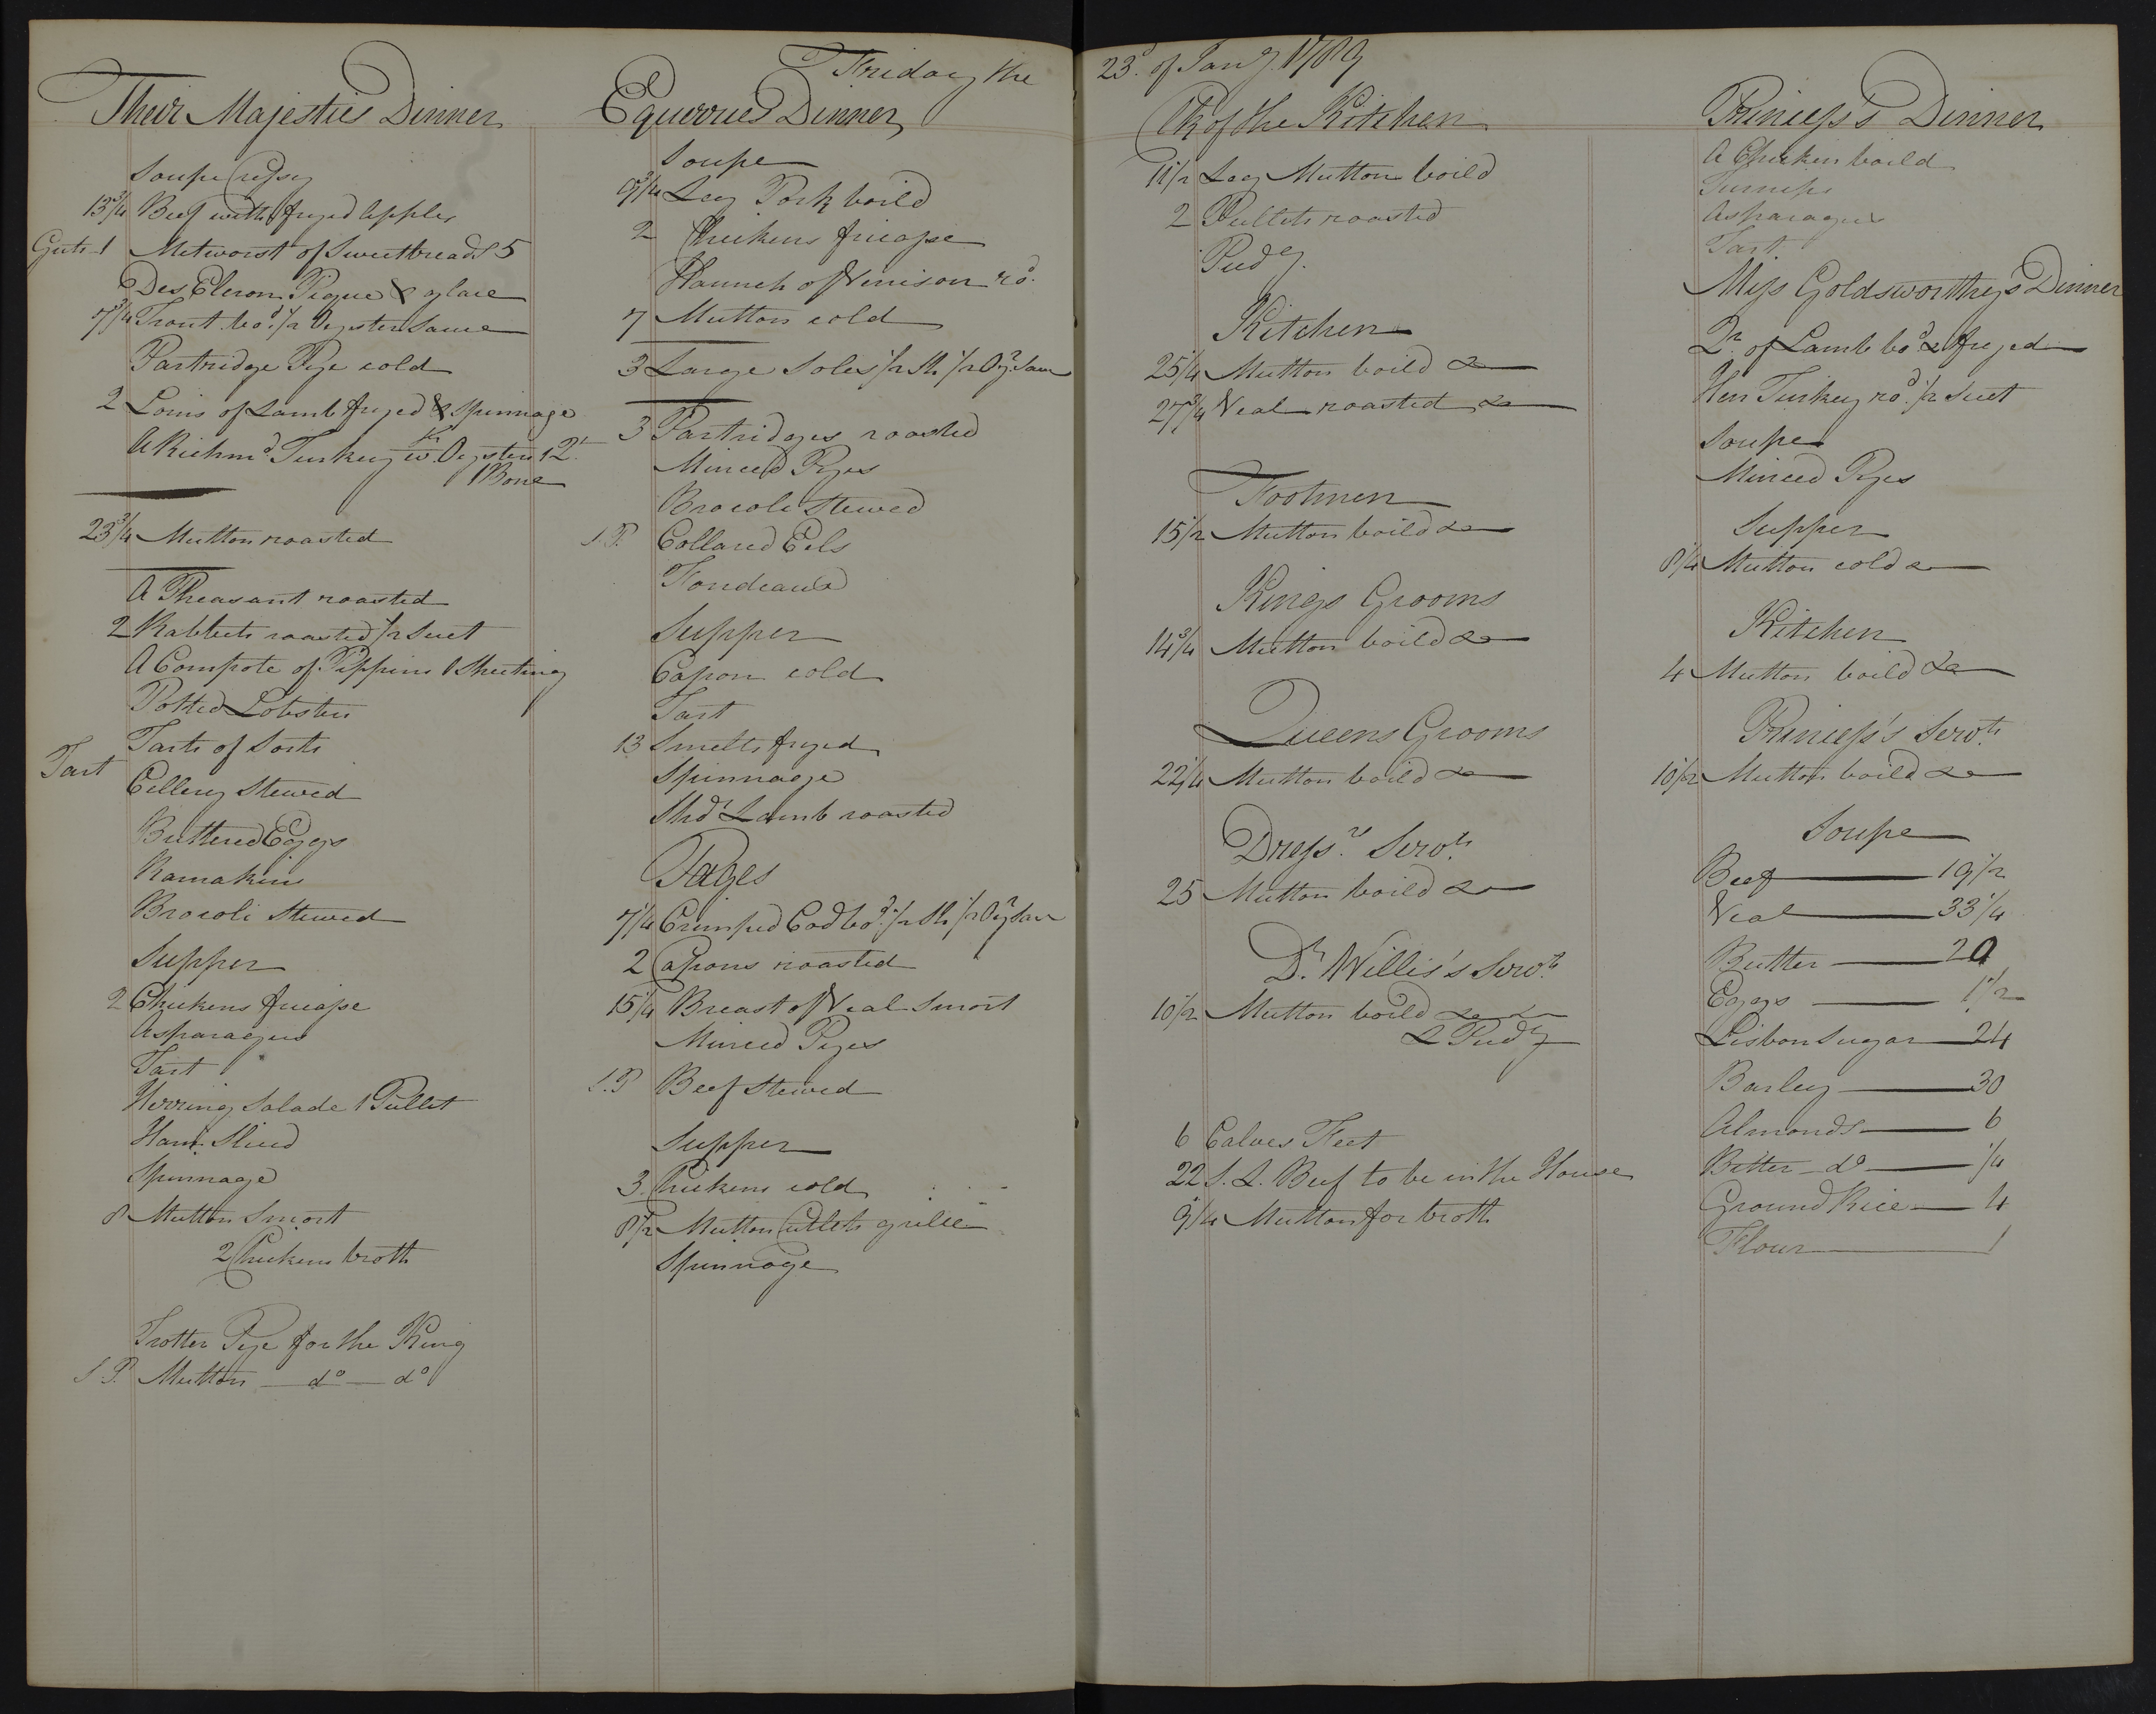 Friday the 23d. of Jany. 1789
Their Majesties Dinner
Soupe Cressy
13 3/4 Beef with fryed Apples
Guts 1 Metworst of Sweetbreads 5
Des Eleron Pique & glace
7 3/4 Trout bod. 1/2 Oyster Sauce
Partridge Pye cold
2 Loins of Lamb fryed & Spinnage
A Richmd. Turkey wth. Oysters 12
1 Bone
23 3/4 Mutton roasted
A Pheasant roasted
2 Rabbets roasted 1/2 Suet
A Compote of Pippins 1 Sheeting
Potted Lobster
Tarts of Sorts
Tart
Cellery Stewed
Buttered Eggs
Ramakins
Brocoli Stewed
Supper
2 Chickens fricasse
Asparagus
Tart
Herring Salade 1 Pullet
Ham Sliced
Spinnage
8 Mutton Smort
2 Chickens broth
Trotter Pye for the King
S.P. Mutton do do
Equerries Dinner
Soupe
9 3/4 Leg Pork boild
2 Chickens fricasse
Haunch of Venison rod.
7 Mutton cold
3 Large Soles 1/2 Sh. 1/2 Oyr. Sauce
3 Partridges roasted
Minced Pyes
Brocoli Stewed
S.P. Collared Eels
Fondeaux
Supper
Capon cold
Tart
13 Smelts fryed
Spinnage
Shdr. Lamb roasted
Pages
7 1/4 Crimped Cod bod. 1/2 Sh. 1/2 Oyr. Sau
2 Capons roasted
15 1/4 Breast of Veal Smort
Minced Pyes
S.P. Beef Stewed
Supper
3 Chickens cold
8 1/2 Mutton Cutlets grillee
Spinnage
Clk of the Kitchen
11 1/2 Leg Mutton boild
2 Pullets roasted
Pudg.
Kitchen
25 1/4 Mutton boild &
27 3/4 Veal roasted &
Footmen
15 1/2 Mutton boild &
Kings Grooms
14 3/4 Mutton boild &
Queens Grooms
22 1/4 Mutton boild &
Dressrs. Servts.
25 Mutton boild &
Dr. Willis's Servts.
10 1/2 Mutton boild & &
& Pudg
6 Calves Feet
22 S.L. Beef to be in the House
9 1/4 Mutton for broth
Princess's Dinner
A Chicken boild
Turnips
Asparagus
Tart
Miss Goldsworthy's Dinner
Qr. of Lamb bod. & fryed
Hen Turkey rod. 1/2 Suet
Soupe
Minced Pyes
Supper
8 1/4 Mutton cold &
Kitchen
4 Mutton boild &
Princess's Servts.
10 1/2 Mutton boild &
Soupe
Beef 19 1/2
Veal 33 1/4
Butter 20
Eggs 1 1/2
Lisbon Sugar 24
Barley 30
Almonds 6
Bitter do 1/4
Ground Rice 4
Flour 1